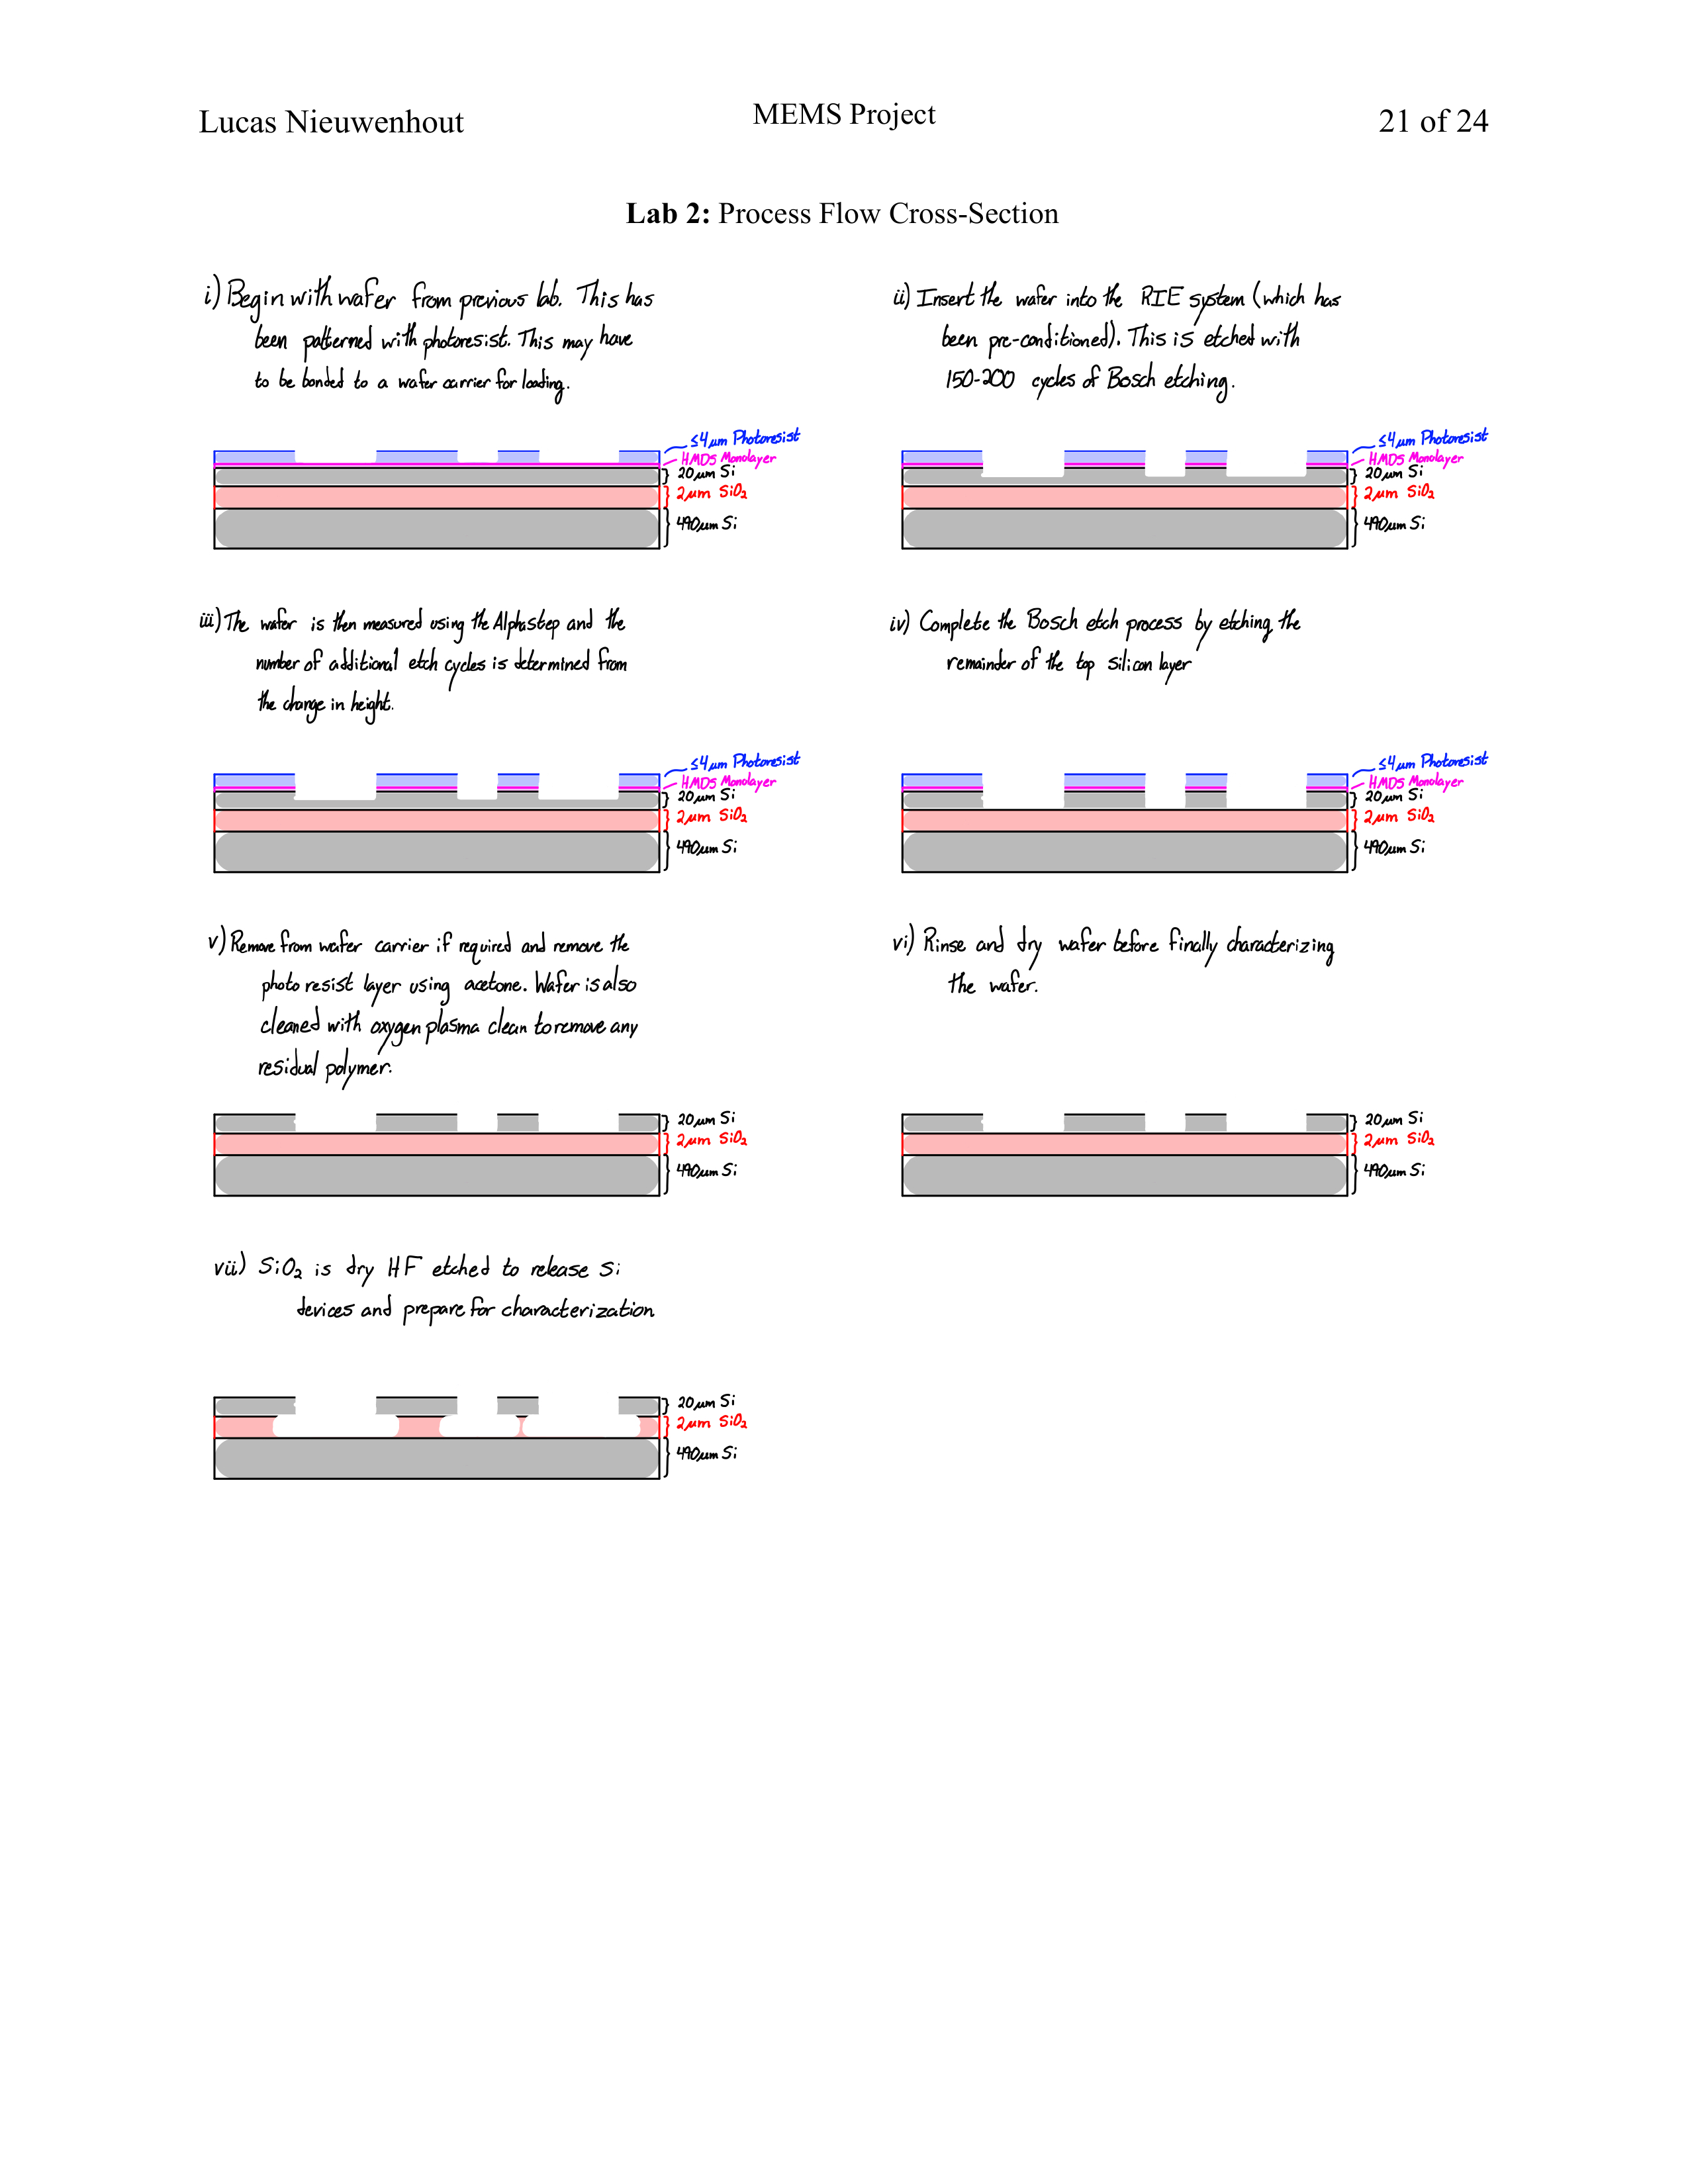 Lucas Nieuwenhout
MEMS Project
21 of 24
Lab 2: Process Flow Cross-Section
i) Begin with wafer from previous lab. This has
been patterned with photoresist. This may have
to be bonded to a wafer carrier for loading.
≤4μm Photoresist
HMDS Monolayer
20μm Si
2μm SiO₂
490μm Si
ii) Insert the wafer into the RIE system (which has
been pre-conditioned). This is etched with
150-200 cycles of Bosch etching.
≤4μm Photoresist
HMDS Monolayer
20μm Si
2μm SiO₂
490μm Si
iii) The wafer is then measured using the Alphastep and the
number of additional etch cycles is determined from
the change in height.
≤4μm Photoresist
HMDS Monolayer
20μm Si
2μm SiO₂
490μm Si
iv) Complete the Bosch etch process by etching the
remainder of the top silicon layer
≤4μm Photoresist
HMDS Monolayer
20μm Si
2μm SiO₂
490μm Si
v) Remove from wafer carrier if required and remove the
photo resist layer using acetone. Wafer is also
cleaned with oxygen plasma clean to remove any
residual polymer.
20μm Si
2μm SiO₂
490μm Si
vi) Rinse and dry wafer before finally characterizing
the wafer.
20μm Si
2μm SiO₂
490μm Si
vii) SiO₂ is dry HF etched to release Si
devices and prepare for characterization
20μm Si
2μm SiO₂
490μm Si